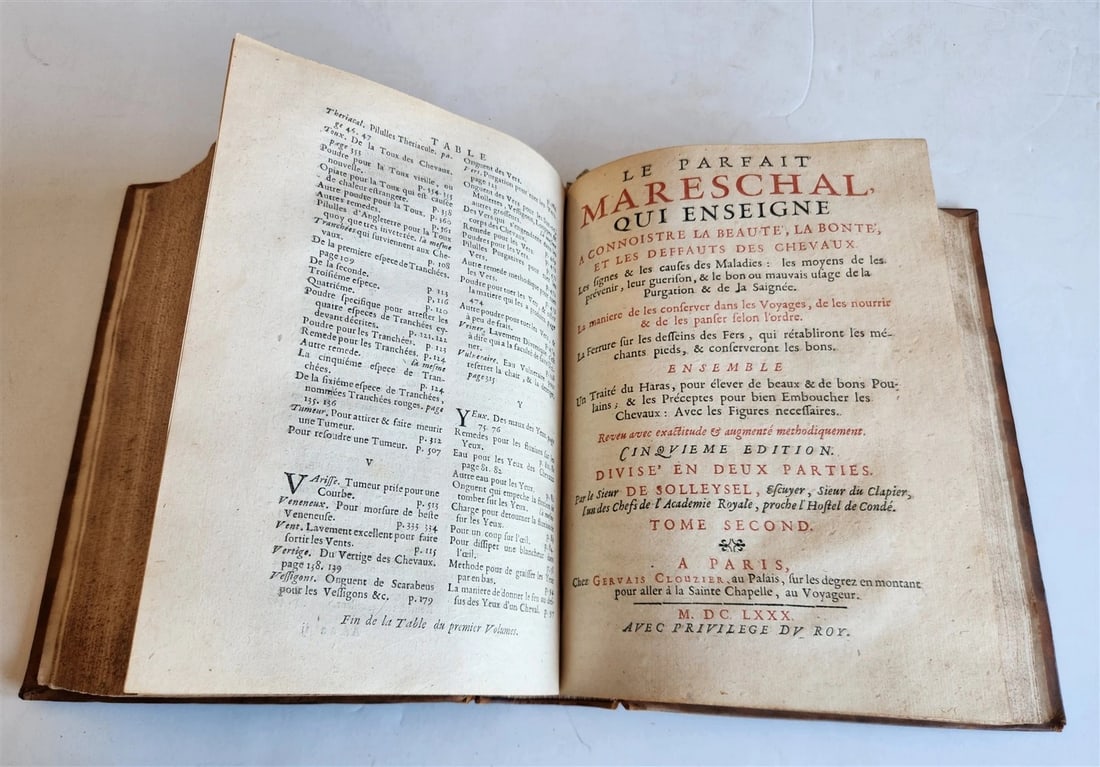 TABLE
Theriacal. Pilulles Theriacale. pa-
ge 46. 47
Toux. De la Toux des Chevaux.
page 355
Poudre pour la Toux vieille, ou
nouvelle. p. 354. 355
Opiate pour la Toux qui est causée
de chaleur estrangere. p. 358
Autre poudre pour la Toux. p. 360
Autres remedes. p. 361
Pilulles d'Angleterre pour la Toux
quoy que tres inveterée. la mesme
Tranchées qui surviennent aux Che-
vaux. p. 108
De la premiere espece de Tranchées.
page 109
De la seconde. p. 113
Troisiéme espece. p. 116
Quatriéme. p. 120
Poudre specifique pour arrester les
quatre especes de Tranchées cy-
devant décrites. p. 121. 122
Poudre pour les Tranchées. p. 123
Remede pour les Tranchées. p. 124
Autre remede. la mesme
La cinquiéme espece de Tran-
chées. p. 124
De la sixiéme espece de Tranchées,
nommées Tranchées rouges. page
135. 136
Tumeur. Pour attirer & faire meurir
une Tumeur. p. 312
Pour resoudre une Tumeur. p. 507
V
VArisse. Tumeur prise pour une
Courbe. p. 513
Veneneux. Pour morsure de beste
Veneneuse. p. 335 334
Vent. Lavement excellent pour faire
sortir les Vents. p. 115
Vertige. Du Vertige des Chevaux.
page 158. 139
Vessigons. Onguent de Scarabeus
pour les Vessigons &c. p. 179
Onguent des Vers.
Vers. Purgation pour
page 121
Onguent des Vers, pour les
Mollettes, Vessigons, &
autres grosseurs,
Des Vers qui s'engendrent
corps des Chevaux
Remede pour les Vers.
Poudres pour les Vers.
Pilules Purgatives pour
Vers.
Autre remede methodique pour
les Vers.
Poudre pour tuer les Vers &
la matiere qui les a produits
474
Autre poudre pour tuer les Vers
à peu de frais.
Vriner. Lavement Diuretique
dire qui a la faculté de faire
ner.
Vulneraire. Eau Vulneraire pour
resserrer la chair, & la
page 315
Y
YEux. Des maux des Yeux page
75. 76
Remedes pour les fluxions sur les
Yeux.
Eau pour les Yeux des Chevaux
page 81. 82
Autre eau pour les Yeux.
Onguent qui empeche la fluxion de
tomber sur les Yeux. la mesme
Charge pour détourner la fluxion
sur les Yeux.
Pour un coup sur l'œil.
Pour dissiper une blancheur
l'œil.
Methode pour de graisser les Yeux
par en bas. p. 94
La maniere de donner le feu au des-
sus des Yeux d'un Cheval. p. 97
Fin de la Table du premier Volumes.
LE PARFAIT
MARESCHAL,
QUI ENSEIGNE
A CONNOISTRE LA BEAUTE', LA BONTE',
ET LES DEFFAUTS DES CHEVAUX.
Les signes & les causes des Maladies: les moyens de les
prévenir, leur guerison, & le bon ou mauvais usage de la
Purgation & de la Saignée.
La maniere de les conserver dans les Voyages, de les nourrir
& de les panser selon l'ordre.
La Ferrure sur les desseins des Fers, qui rétabliront les mé-
chants pieds, & conserveront les bons.
ENSEMBLE
Un Traité du Haras, pour élever de beaux & de bons Pou-
lains; & les Préceptes pour bien Emboucher les
Chevaux: Avec les Figures necessaires.
Reveu avec exactitude & augmenté méthodiquement.
CINQVIEME EDITION.
DIVISE' EN DEUX PARTIES.
Par le Sieur DE SOLLEYSEL, Escuyer, Sieur du Clapier,
l'un des Chefs de l'Academie Royale, proche l'Hostel de Condé.
TOME SECOND.
A PARIS,
Chez GERVAIS CLOUZIER, au Palais, sur les degrez en montant
pour aller à la Sainte Chapelle, au Voyageur.
M. DC. LXXX.
AVEC PRIVILEGE DV ROY.